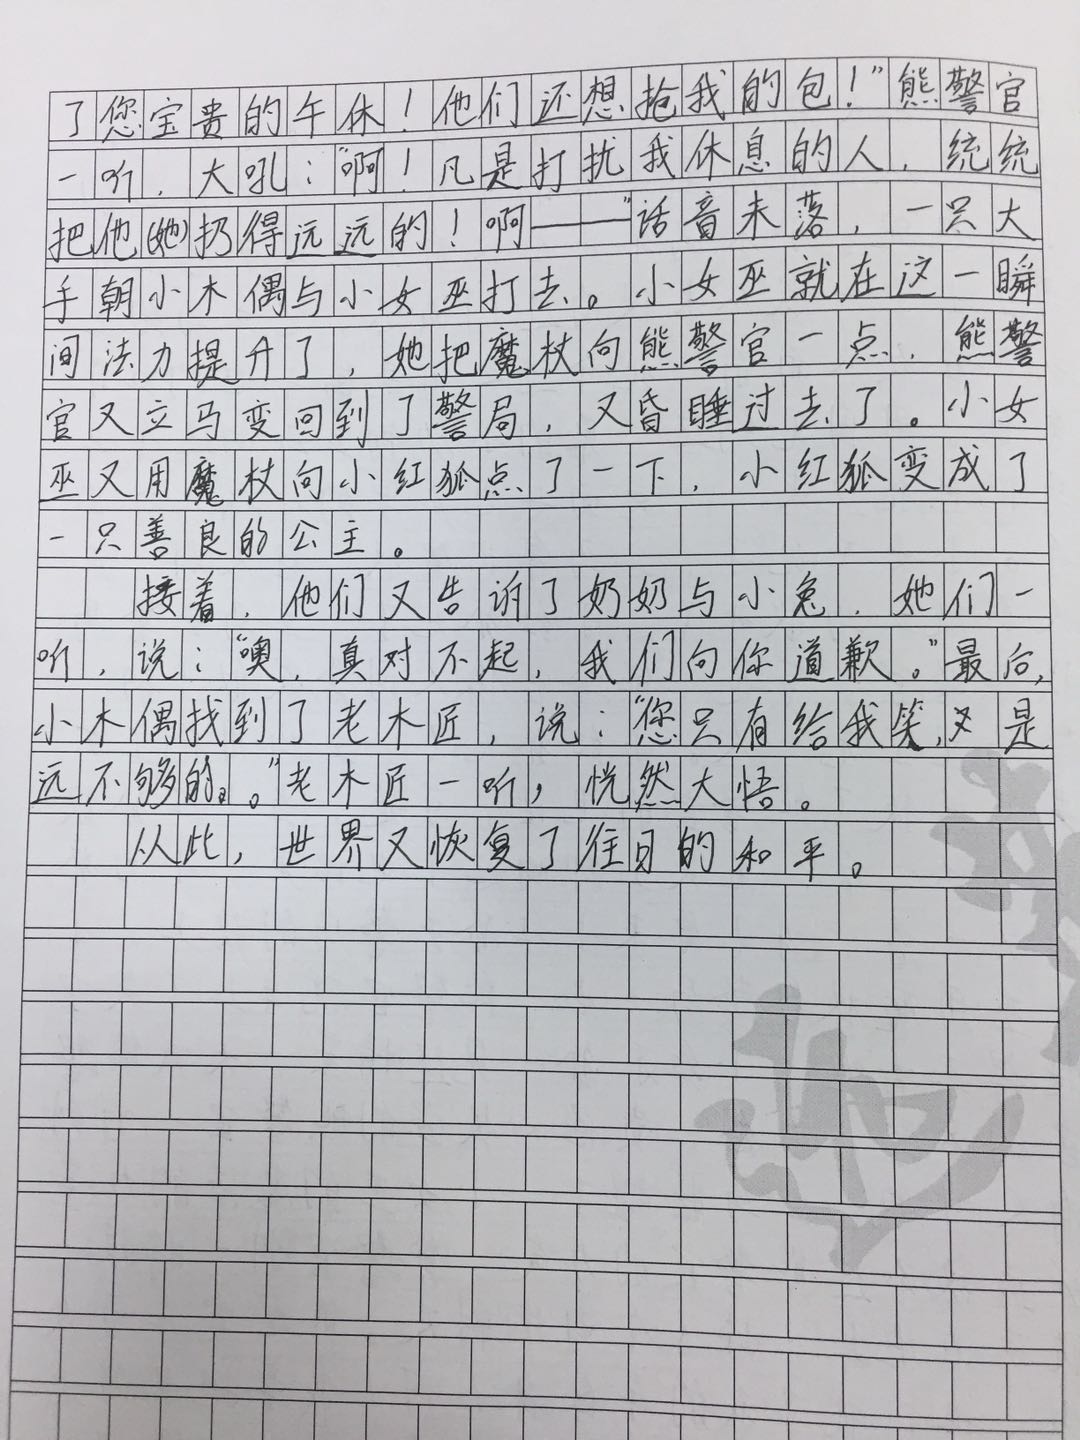 了您宝贵的午休！他们还想抢我的包！”熊警官
一听，大吼：“啊！凡是打扰我休息的人，统统
把他(她)扔得远远的！啊——”话音未落，一只大
手朝小木偶与小女巫打去。小女巫就在这一瞬
间法力提升了，她把魔杖向熊警官一点，熊警
官又立马变回到了警局，又昏睡过去了。小女
巫又用魔杖向小红狐点了一下，小红狐变成了
一只善良的公主。
接着，他们又告诉了奶奶与小兔，她们一
听，说：“噢，真对不起，我们向你道歉。”最后，
小木偶找到了老木匠，说：“您只有给我笑，又是
远不够的。”老木匠一听，恍然大悟。
从此，世界又恢复了往日的和平。